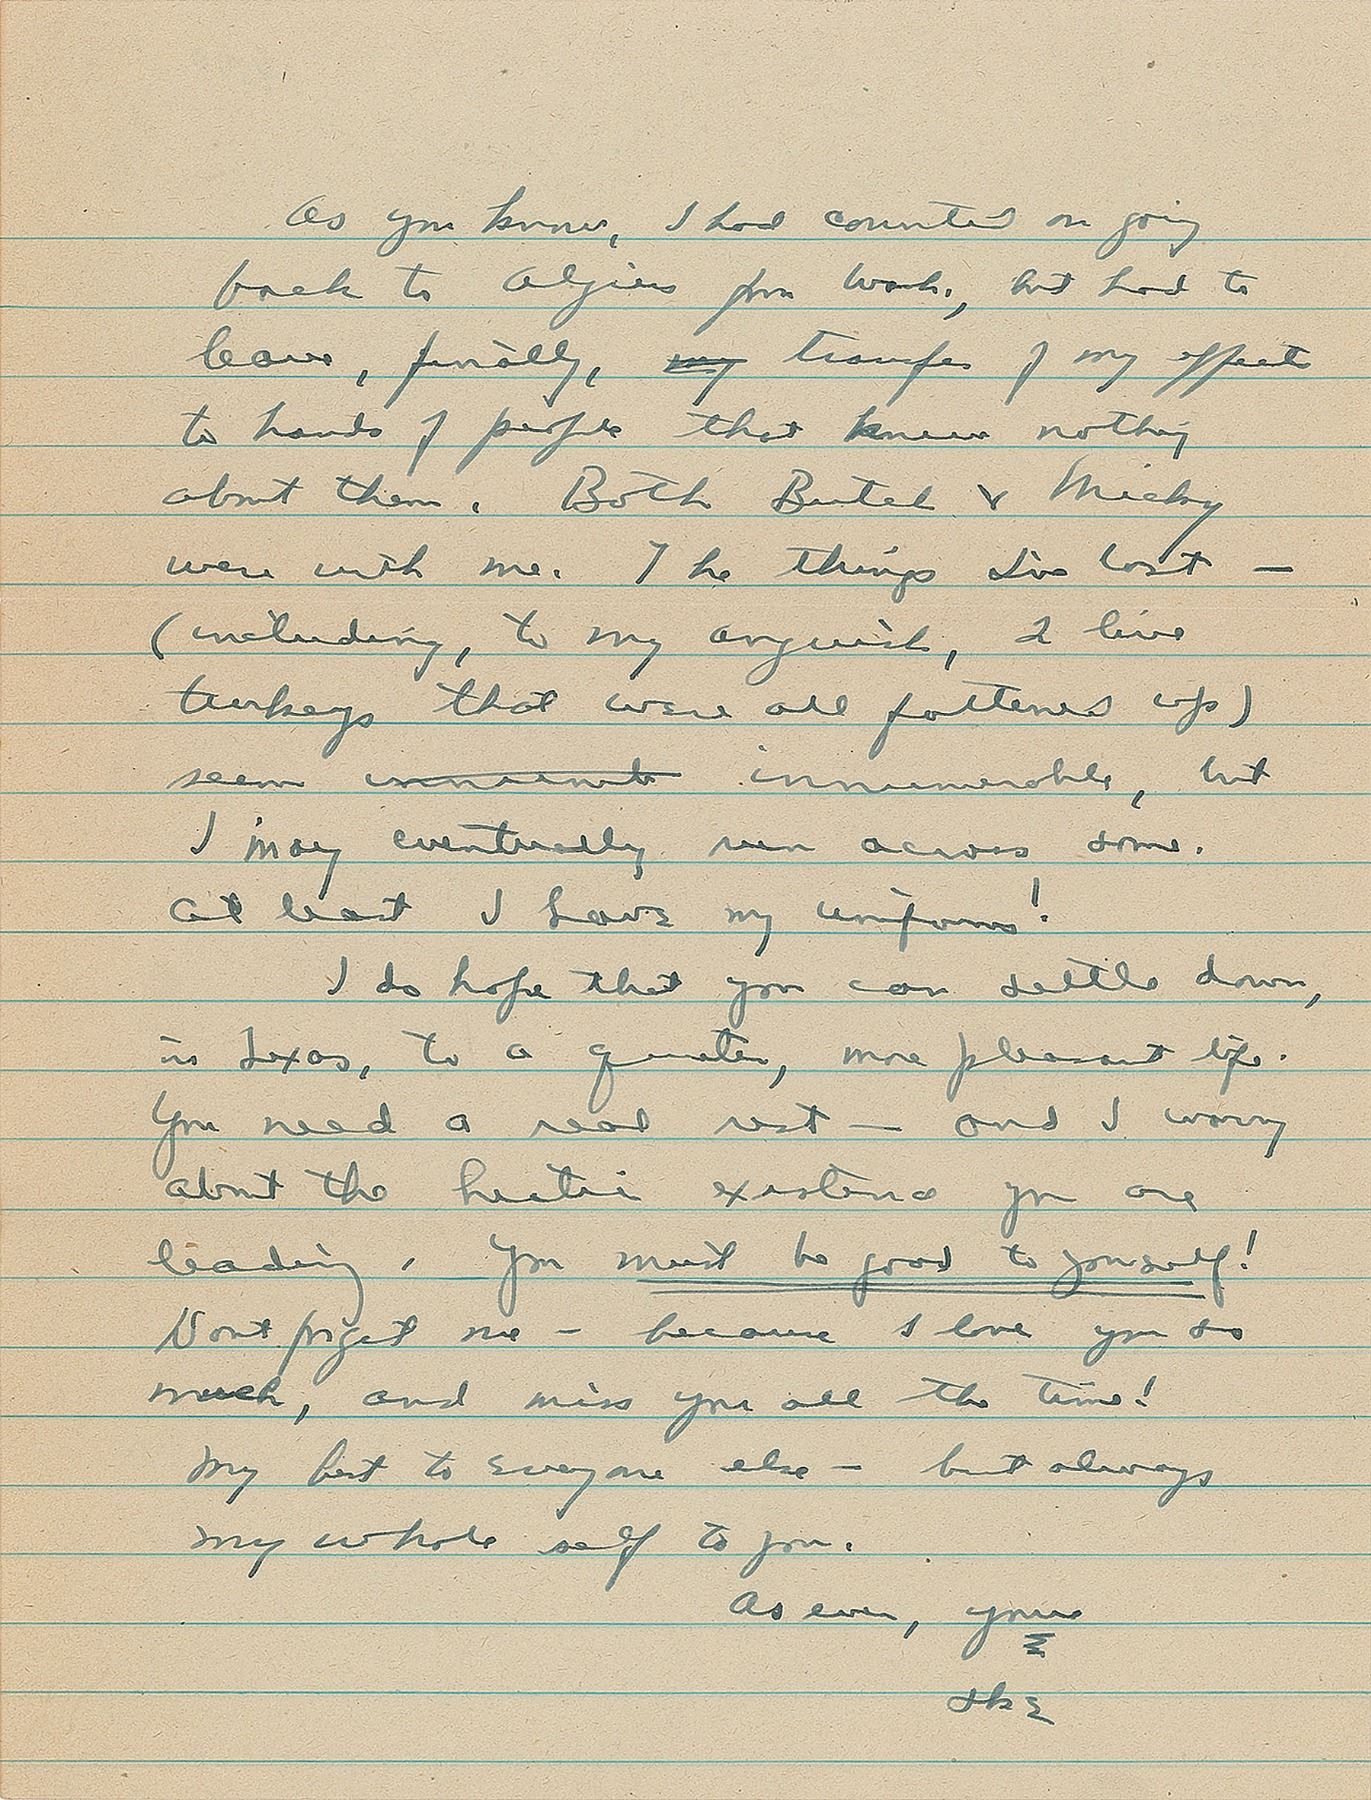 As you know, I had counted on going
back to Algiers for work, but had to
leave, finally, my transfer of my effects
to hands of people that knew nothing
about them. Both Butch & Micky
were with me. The things I've lost —
(including, to my anguish, 2 live
turkeys that were all fattened up)
seem innumerable, but
I may eventually run across some.
At least I have my uniforms!
I do hope that you can settle down,
in Texas, to a quieter, more pleasant life.
You need a real rest — and I worry
about the hectic existence you are
leading. You must be good to yourself!
Dont forget me — because I love you so
much, and miss you all the time!
My best to everyone else — but always
my whole self to you.
As ever, yours
Ike